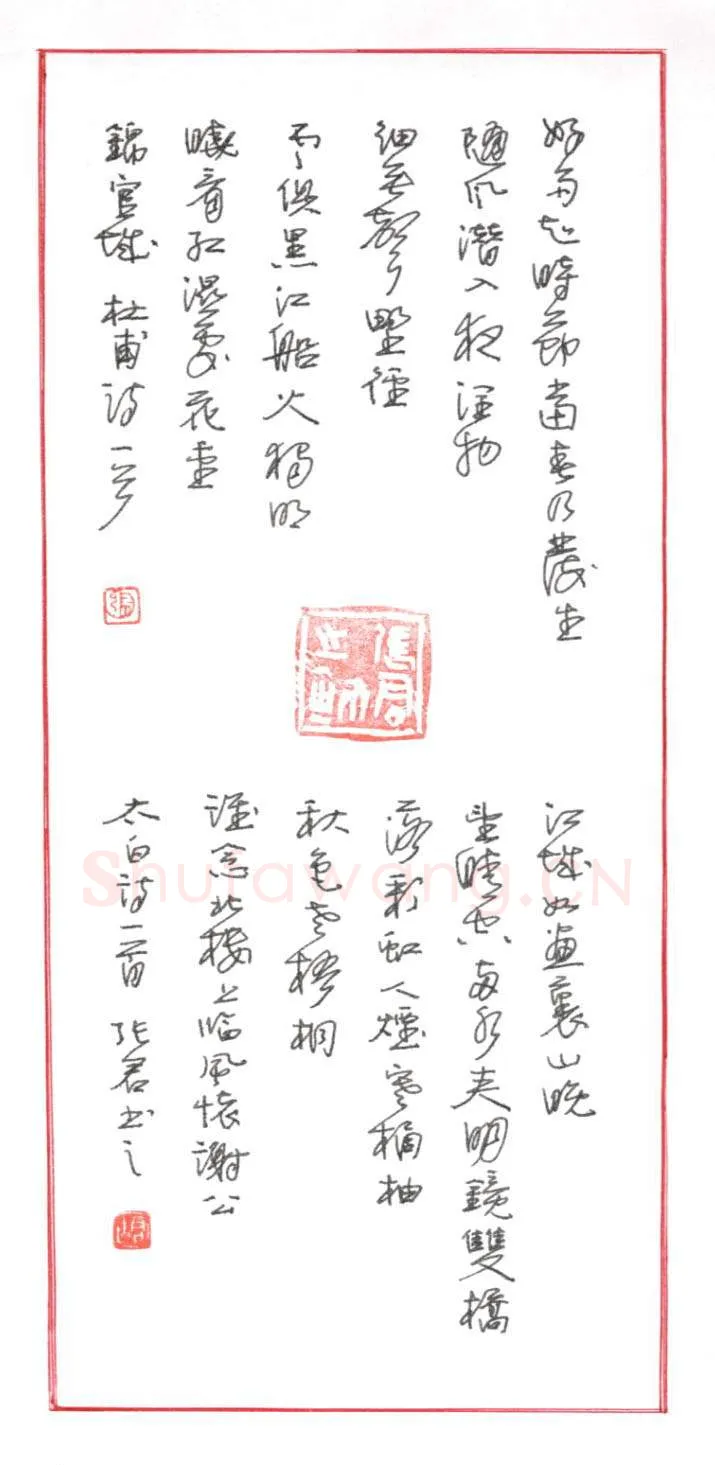 好雨知時節當春乃發生
隨风潛入夜潤物
細無聲野徑
雲俱黑江船火獨明
曉看紅濕處花重
錦官城 杜甫詩一首
江城如畫裏山晚
望晴空兩水夾明鏡雙橋
落彩虹人煙寒橘柚
秋色老梧桐
誰念北樓上臨風懷謝公
太白詩一首 張君書之
Shufawang.CN